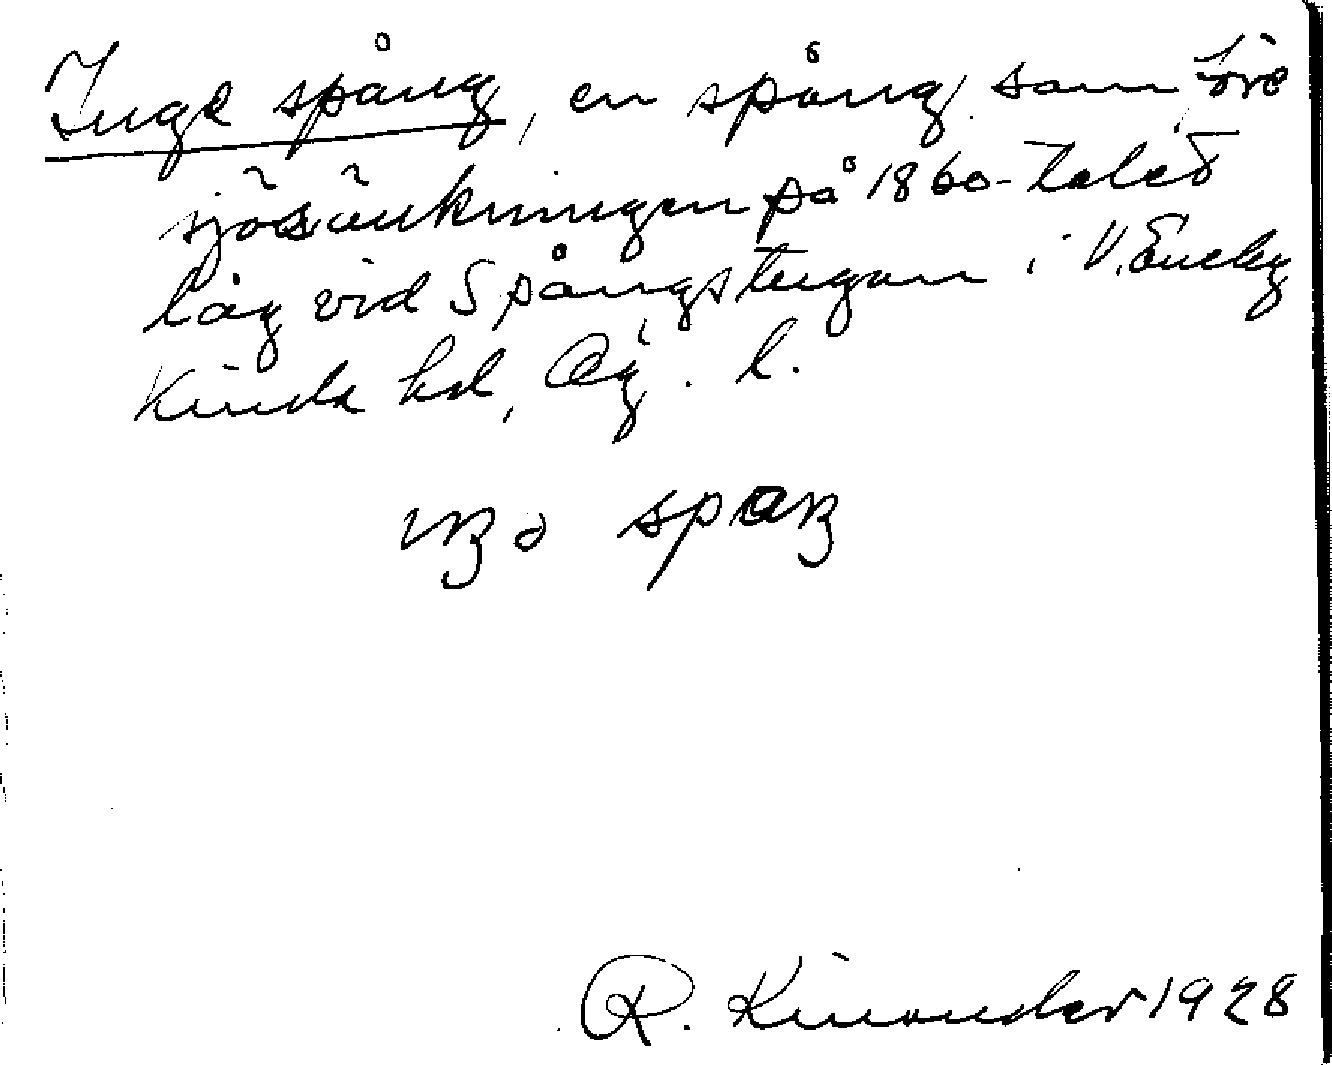 Inge spång, en spång som före
sjösänkningen på 1860-talet
låg vid Spångstugan i V. Eneby
Kinda hd, Ög. l.
R. Kinander 1928